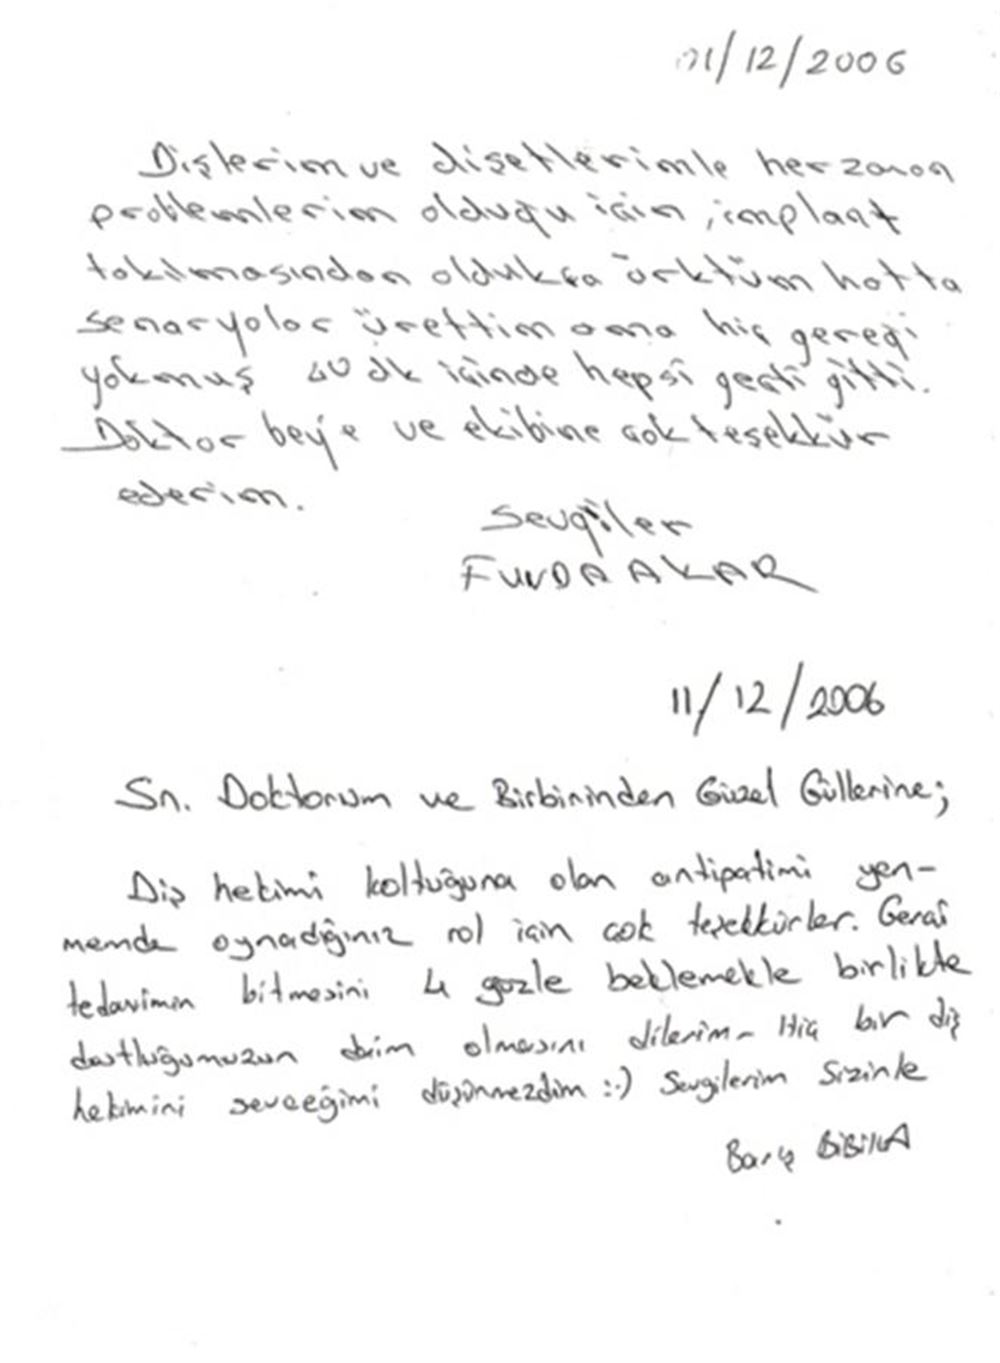 01/12/2006
Dişlerim ve dişetlerimle her zaman
problemlerim olduğu için, implant
takılmasından oldukça ürktüm hatta
senaryolar ürettim ama hiç gereği
yokmuş 40 dk içinde hepsi geçti gitti.
Doktor bey'e ve ekibine çok teşekkür
ederim.
Sevgiler
FUNDA AKAR
11/12/2006
Sn. Doktorum ve Birbirinden Güzel Güllerine;
Diş hekimi koltuğuna olan antipatimi yen-
memde oynadığınız rol için çok teşekkürler. Gerçi
tedavimin bitmesini 4 gözle beklemekle birlikte
dostluğumuzun daim olmasını dilerim- Hiç bir diş
hekimini seveceğimi düşünmezdim :-) Sevgilerim Sizinle
Barış